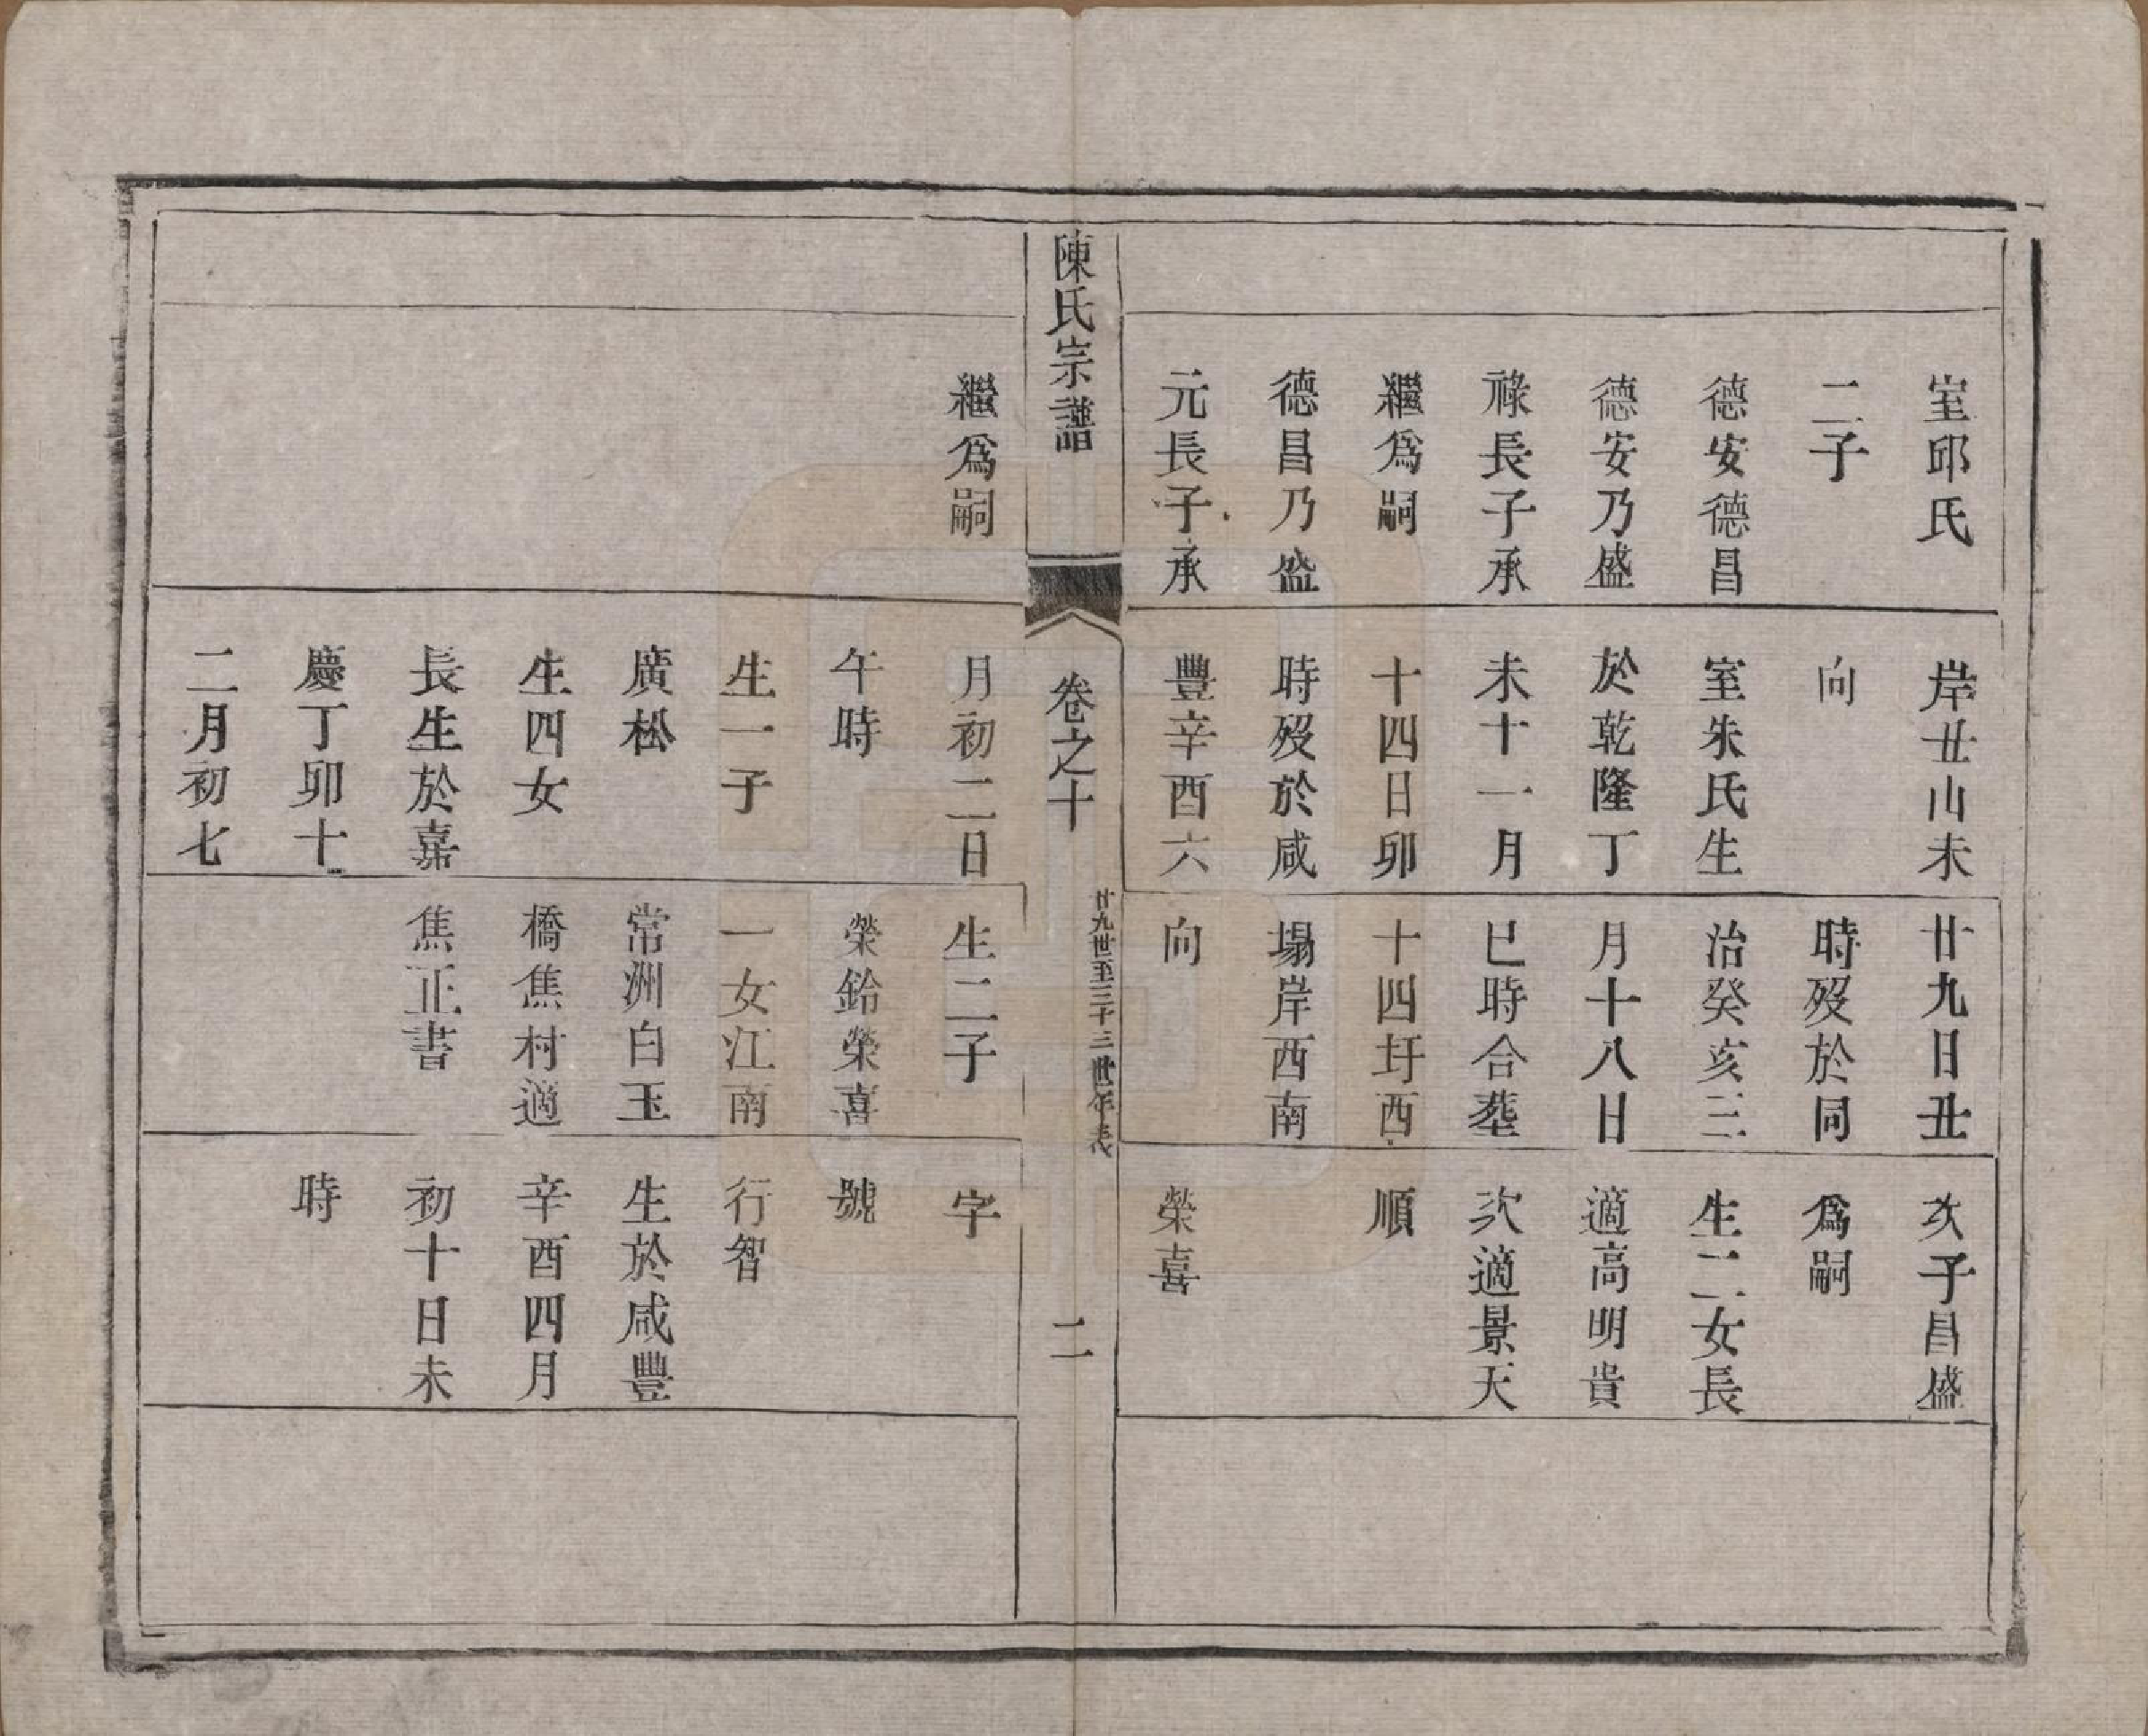 室邱氏
二子
德安德昌
德安乃盛
祿長子承
繼爲嗣
德昌乃盛
元長子承
岸丑山未
向
室朱氏生
於乾隆丁
未十一月
十四日卯
時歿於咸
豐辛酉六
廿九日丑
時歿於同
治癸亥三
月十八日
巳時合塟
十四圩西
塌岸西南
向
次子昌盛
爲嗣
生二女長
適高明貴
次適景天
順
榮喜
陳氏宗譜
卷之十
廿九世至三十三世年表
二
繼爲嗣
月初二日
午時
生一子
廣松
生四女
長生於嘉
慶丁卯十
二月初七
生二子
榮鈴榮喜
一女江南
常洲白玉
橋焦村適
焦正書
字
號
行智
生於咸豐
辛酉四月
初十日未
時